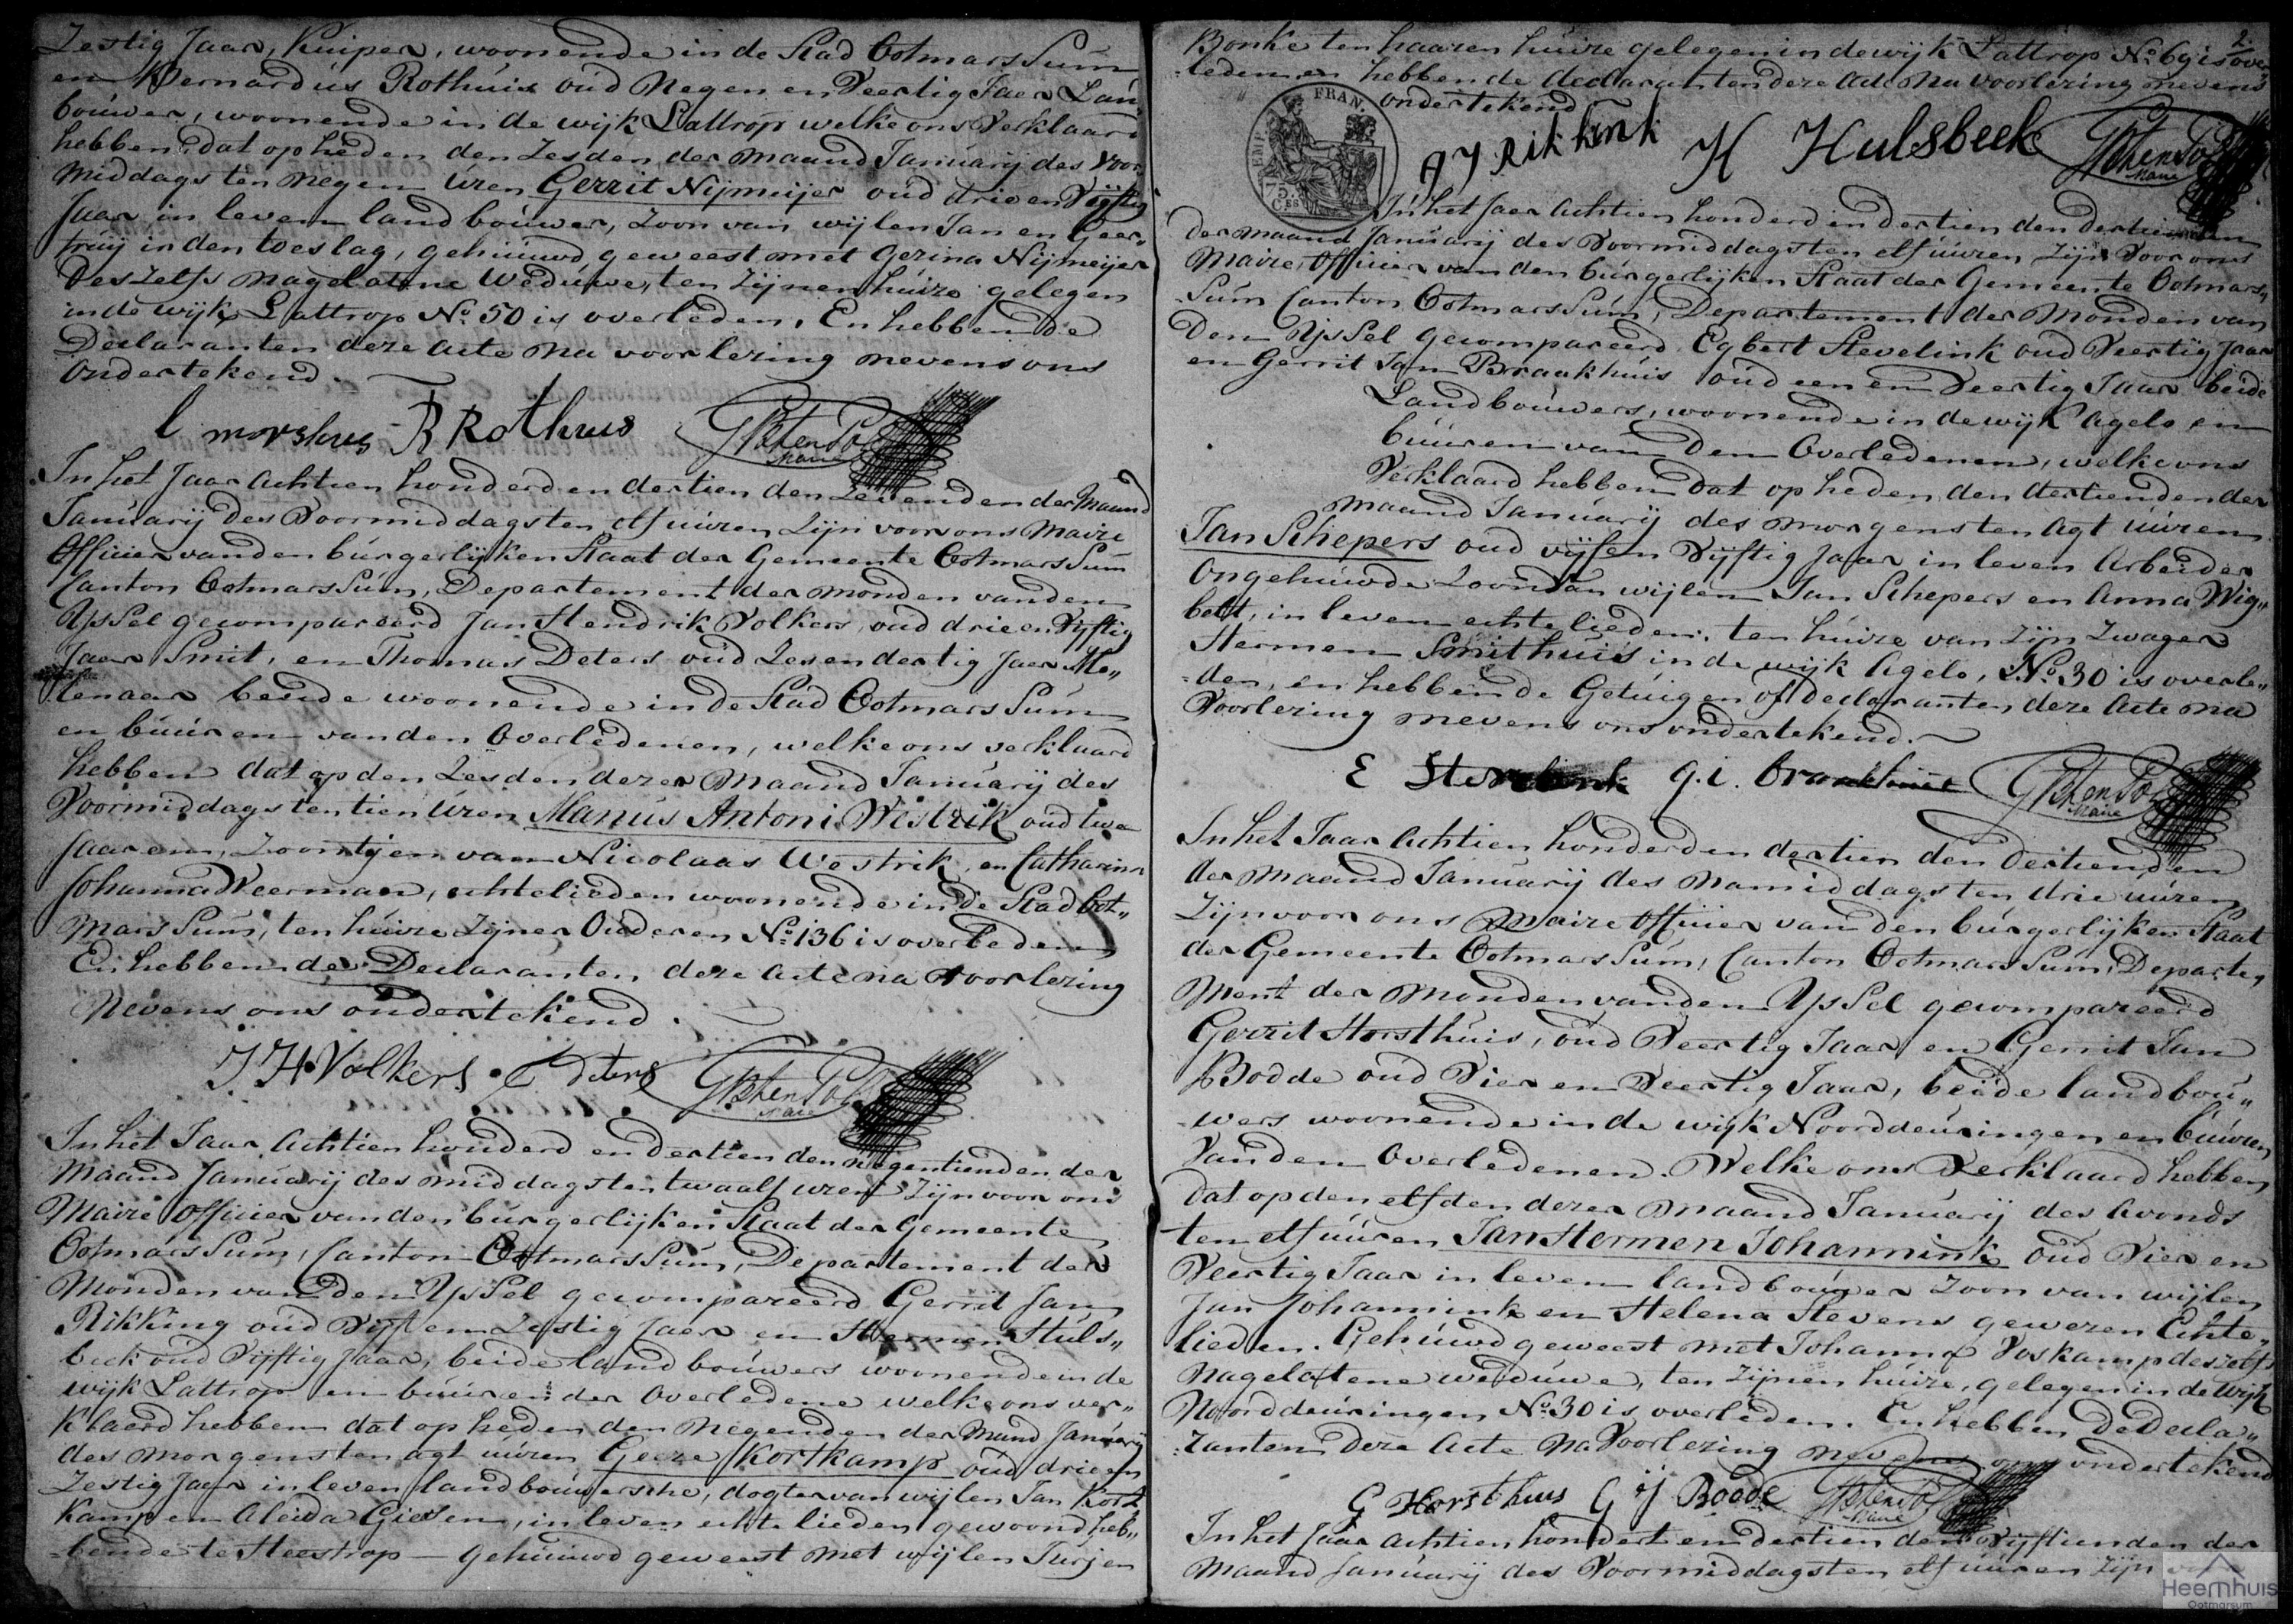 Zestig Jaar, Kuiper, woonende in de Stad OotmarsSum
en Bernardus Rothuis oud Negen en Veertig Jaer Lan„
bouwer, woonende in de wijk Lattrop welke ons Verklaard
hebben dat op heden den Zesden der maand Januarij des Voor
middags ten negen uren Gerrit Nijmeijer oud drie en Vijftig
Jaar in leven landbouwer, Zoon van wijlen Jan en Geer„
truij in den toeslag, gehuuwd geweest met Gezina Nijmeijer
Deszelfs nagelatene Weduwe, ten Zijnen huize gelegen
in de wijk Lattrop No. 50 is overleden. En hebben de
Declaranten deze acte na voorlezing nevens ons
Ondertekend.
morshuis B Rothuis GB ten Pol
Maire
In het Jaar achtien honderd en dertien den Zevenden der Maand
Januarij des Voormiddags ten elf uuren Zijn voor ons Maire
Officier van den burgerlijken Staat der Gemeente OotmarsSum
Canton OotmarsSum, Departement der Monden van den
YsSel gecompareerd Jan Hendrik Volkers oud drie en Vijftig
Jaer Smit, en Thomas Deters oud Zes en dertig Jaer Mo„
lenaar beide woonende in de Stad OotmarsSum
en buuren van den Overledenen, welke ons verklaard
hebben dat op den Zesden dezer Maand Januarij des
Voormiddags ten tien Uren Manus Antoni Westrik oud twee
Jaaren, Zoontjen van Nicolaas Westrik en Catharina
Johanna Veerman, echtelieden woonende in de Stad Oot„
marsSum, ten huize Zijner Ouderen No. 136 is overleden
En hebben de Declaranten deze acte na voorlezing
Nevens ons ondertekend.
J H Volkers Deters GB ten Pol
Maire
In het Jaar Achtien honderd en dertien den negentienden der
Maand Januarij des middags ten twaalf uren Zijn voor ons
Maire Officier van den burgerlijken Staat der Gemeente
OotmarsSum, Canton OotmarsSum, Departement der
Monden van den YsSel gecompareerd Gerrit Jan
Rikking oud Vijf en Zestig Jaer en Hermen Huls„
beek oud Vijftig Jaar, beide landbouwers woonende in de
wijk Lattrop en buuren der Overledene welke ons ver„
klaard hebben dat op heden den Negenden der Mand Januarij
des morgens ten agt uuren Geeze Kortkamp oud drie en
Zestig Jaer in leven landbouwersche, dogter van wijlen Jan Kort
Kamp en Aleida Giesen, in leven echtelieden gewoond heb„
bende te Heestrop — gehuuwd geweest met wijlen Jurjen
2
Bonke ten haaren huize gelegen in de wijk Lattrop No. 69 is over
leden en hebben de declaranten deze acte na voorlezing nevens
ondertekend
EMP. FRAN.
75.
Ces
G J Rikkink H Hulsbeek GB ten Pol
Maire
In het Jaer Achtien honderd en dertien den dertienden
der maand Januarij des Voormiddags ten elf uuren Zijn Voor ons
Maire, Officier van den burgerlijken Staat der Gemeente Ootmars„
Sum Canton OotmarsSum, Departement der Monden van
den YsSel gecompareerd Egbert Stevelink oud Veertig Jaar
en Gerrit Jan Braakhuis oud een en Veertig Jaar beide
Landbouwers, woonende in de wijk Agelo en
buuren van den Overledenen, welke ons
Verklaard hebben dat op heden den dertienden der
maand Januarij des morgens ten Agt uuren
Jan Schepers oud vijf en Vijftig Jaar in leven Arbeider
Ongehuwde Zoon van wijlen Jan Schepers en Anna Wig„
belt, in leven echtelieden, ten huize van Zijn Zwager
Hermen Smithuis in de wijk Agelo, No. 30 is overle„
den, en hebben de Getuigen of declaranten deze Acte na
Voorlezing nevens ons ondertekend.
E Stevelink g.i. braakhuis GB ten Pol
Maire
In het Jaar Achtien honderd en dertien den dertienden
der maand Januarij des namiddags ten drie uuren
Zijn voor ons Maire Officier van den burgerlijken Staat
der Gemeente OotmarsSum, Canton OotmarsSum, Departe„
Ment der Monden van den YsSel gecompareerd
Gerrit Horsthuis, oud Veertig Jaar en Gerrit Jan
Bodde oud Vier en Veertig Jaar, beide landbou„
wers woonende in de wijk Noorddeuringen en buuren
Van den Overledenen. Welke ons Verklaard hebben
dat op den elfden dezer maand Januarij des Avonds
ten elf uuren Jan Hermen Johannink oud Vier en
Veertig Jaar in leven landbouwer Zoon van wijlen
Jan Johannink en Helena Stevens gewezen Echte„
lieden. Gehuuwd geweest met Johanna Voskamp deszelfs
Nagelatene weduwe, ten Zijnen huize, gelegen in de wijk
Noorddeuringen No. 30 is overleden. En hebben de Decla„
ranten deze Acte na Voorlezing nevens ons ondertekend
G Horsthuis G J Bodde GB ten Pol
Maire
In het Jaar Achtien hondert en dertien den Vijftienden der
Maand Januarij des Voormiddags ten elf uuren Zijn
Heemhuis
Ootmarsum